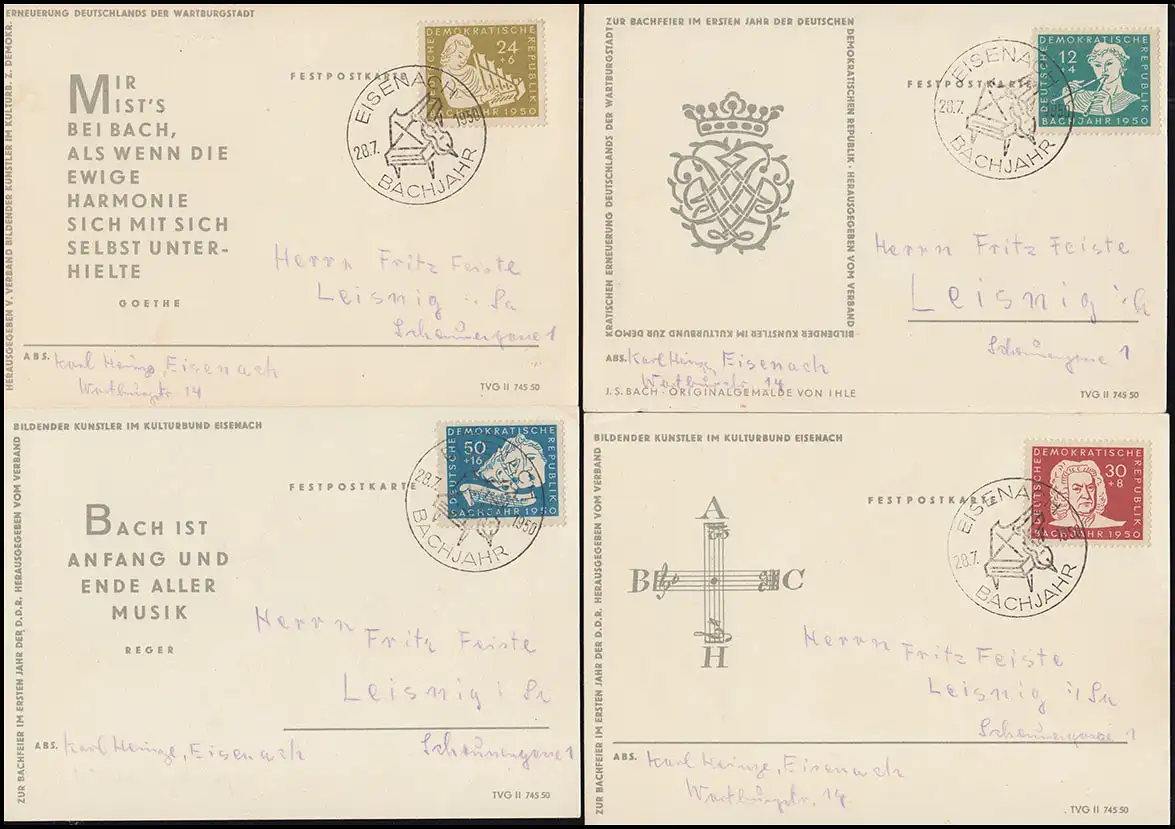 ERNEUERUNG DEUTSCHLANDS DER WARTBURGSTADT
HERAUSGEGEBEN V. VERBAND BILDENDER KÜNSTLER IM KULTURB. Z. DEMOKR.
MIR
IST'S
BEI BACH,
ALS WENN DIE
EWIGE
HARMONIE
SICH MIT SICH
SELBST UNTER-
HIELTE
GOETHE
FESTPOSTKARTE
DEUTSCHE DEMOKRATISCHE REPUBLIK
24
+6
BACHJAHR 1950
EISENACH
28.7. 1950
BACHJAHR
Herrn Fritz Feiste
Leisnig i/Sa
Scheunengasse 1
ABS. Karl Heinze, Eisenach
Wartburgstr. 14
TVG II 745 50
ZUR BACHFEIER IM ERSTEN JAHR DER DEUTSCHEN
DEMOKRATISCHEN REPUBLIK · HERAUSGEGEBEN VOM VERBAND
BILDENDER KÜNSTLER IM KULTURBUND ZUR DEMO-
KRATISCHEN ERNEUERUNG DEUTSCHLANDS DER WARTBURGSTADT
FESTPOSTKARTE
DEUTSCHE DEMOKRATISCHE REPUBLIK
12
+4
BACHJAHR 1950
EISENACH
28.7. 1950
BACHJAHR
Herrn Fritz Feiste
Leisnig i/Sa
Scheunengasse 1
ABS. Karl Heinze, Eisenach
Wartburgstr. 14
J. S. BACH · ORIGINALGEMÄLDE VON IHLE
TVG II 745 50
BILDENDER KÜNSTLER IM KULTURBUND EISENACH
ZUR BACHFEIER IM ERSTEN JAHR DER D.D.R. HERAUSGEGEBEN VOM VERBAND
BACH IST
ANFANG UND
ENDE ALLER
MUSIK
REGER
FESTPOSTKARTE
DEUTSCHE DEMOKRATISCHE REPUBLIK
50
+16
BACHJAHR 1950
EISENACH
28.7. 1950
BACHJAHR
Herrn
Fritz Feiste
Leisnig i/Sa
Scheunengasse 1
ABS. Karl Heinze, Eisenach
TVG II 745 50
BILDENDER KÜNSTLER IM KULTURBUND EISENACH
ZUR BACHFEIER IM ERSTEN JAHR DER D.D.R. HERAUSGEGEBEN VOM VERBAND
A
B C
H
FESTPOSTKARTE
DEUTSCHE DEMOKRATISCHE REPUBLIK
30
+8
BACHJAHR 1950
EISENACH
28.7. 1950
BACHJAHR
Herrn Fritz Feiste
Leisnig i/Sa
Scheunengasse 1
ABS. Karl Heinze, Eisenach
Wartburgstr. 14
TVG II 745 50